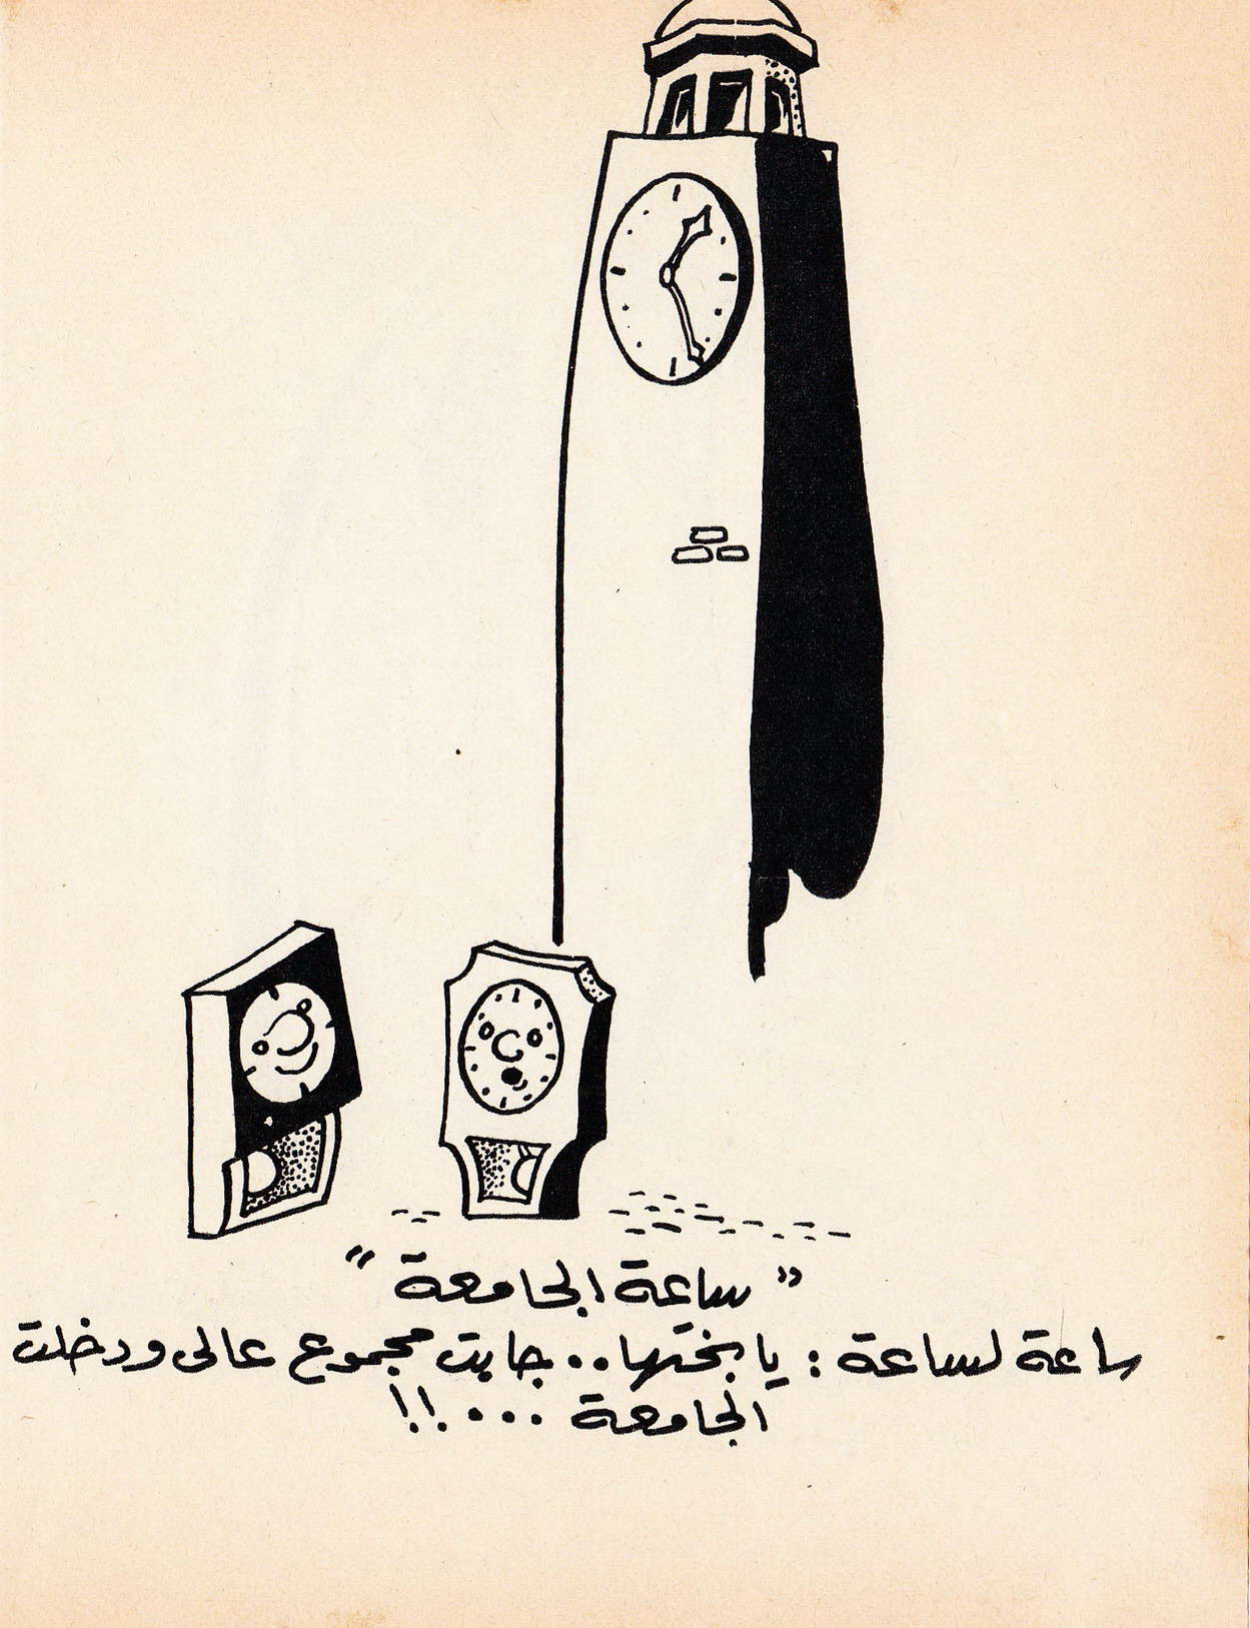 " ساعة الجامعة "
ساعة لساعة : يا بختها .. جابت مجموع عالى ودخلت
الجامعة ... !!